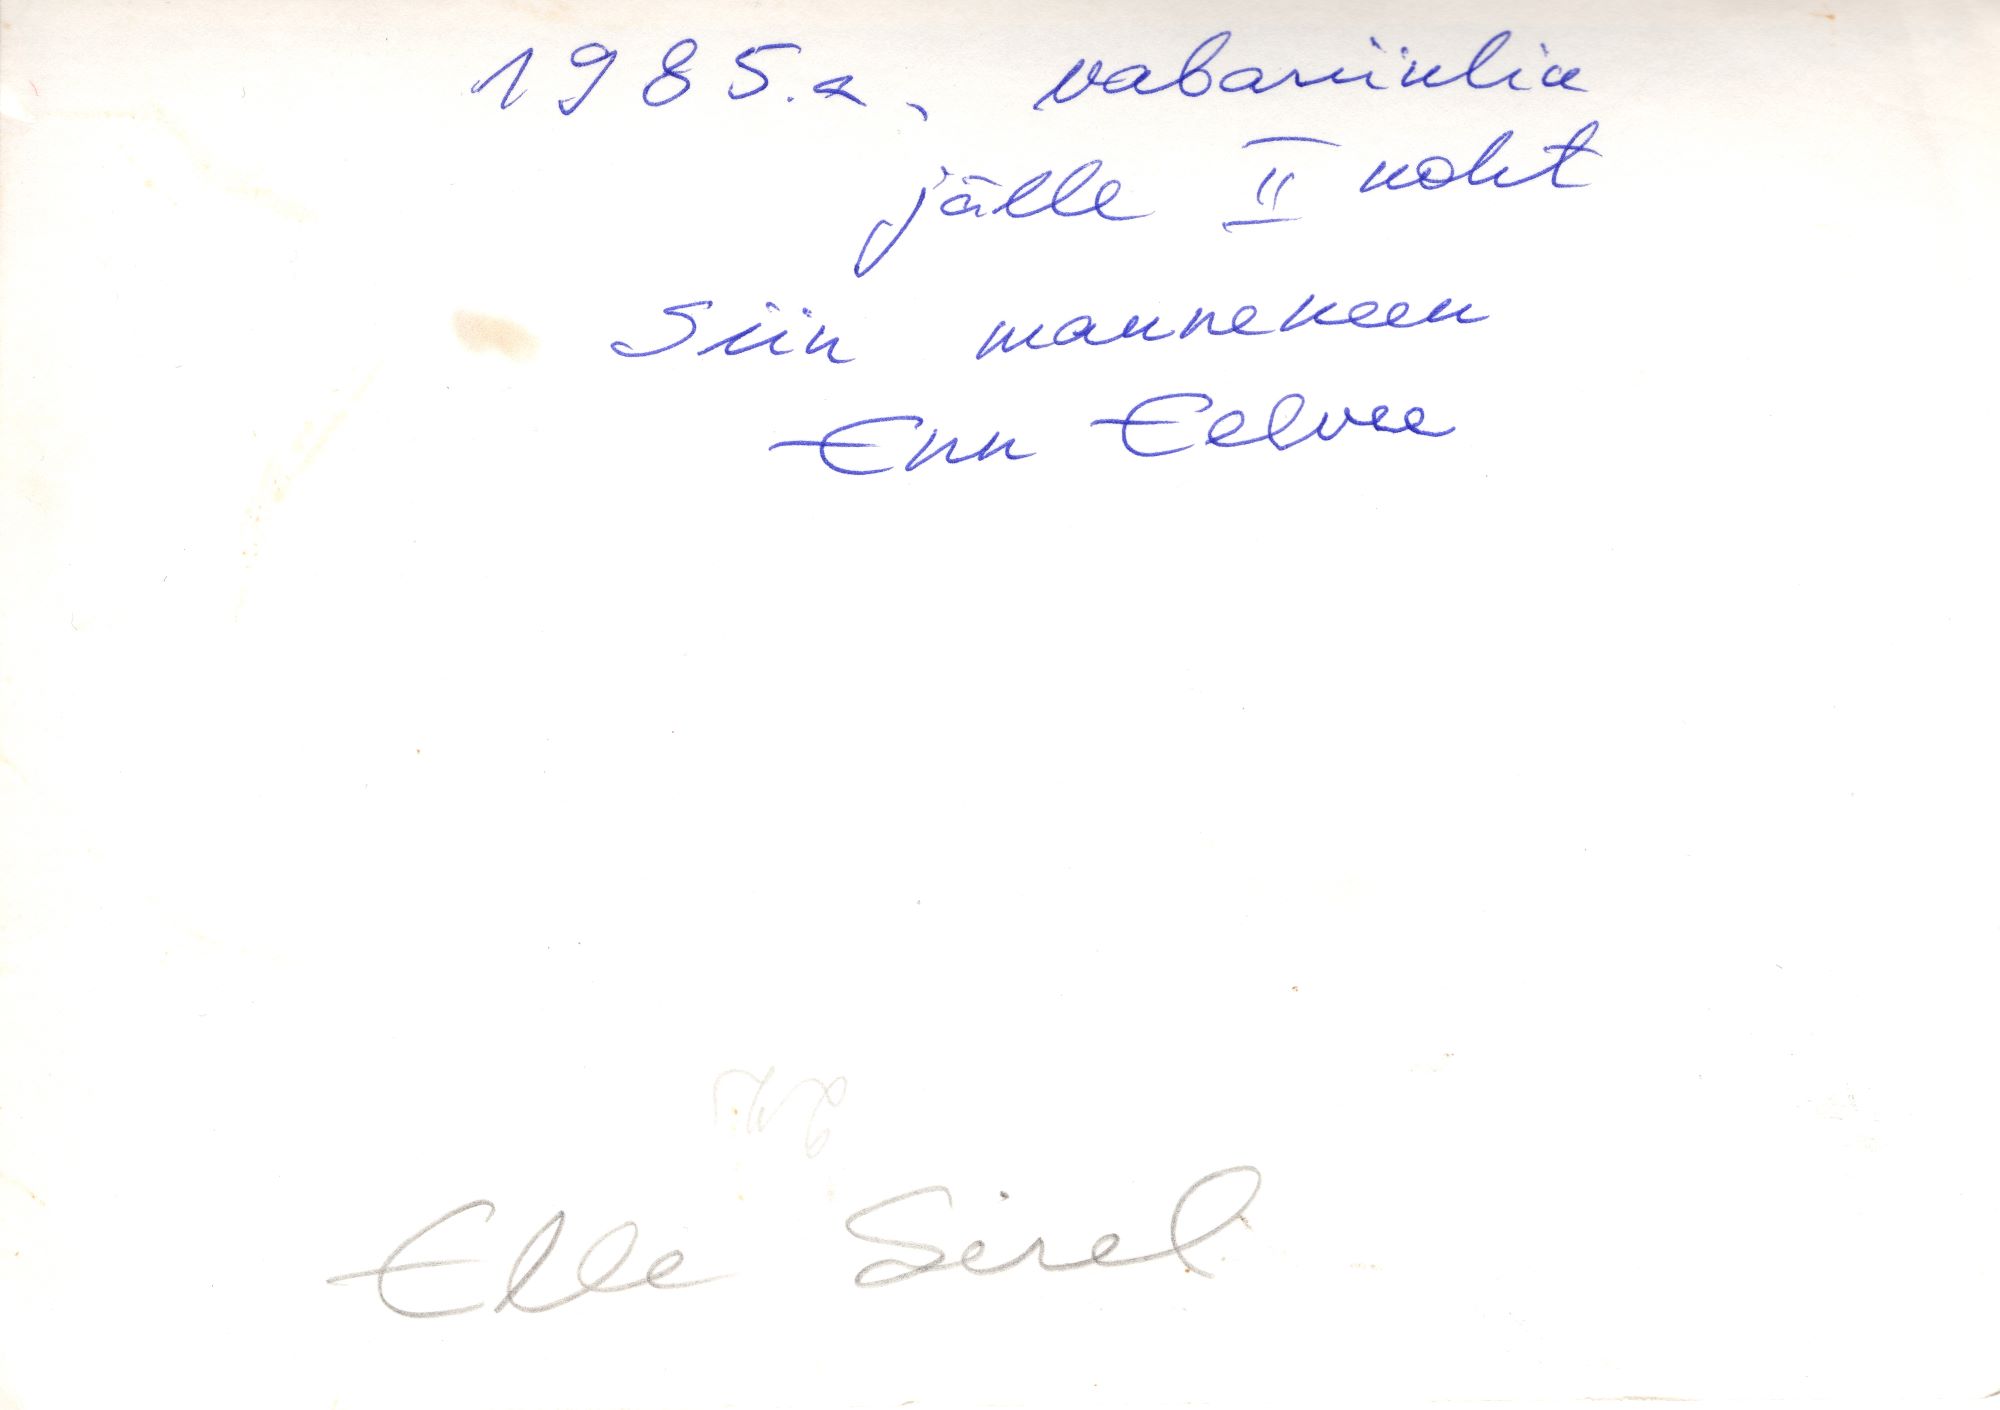 1985.a, vabariiklik
jälle II koht
Siin mannekeen
Enn Eelvee
Elle Sirel